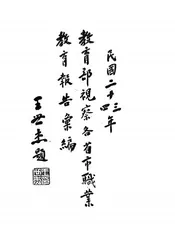 民國二十三四年
教育部視察各省市職業
教育報告彙編
王世杰題